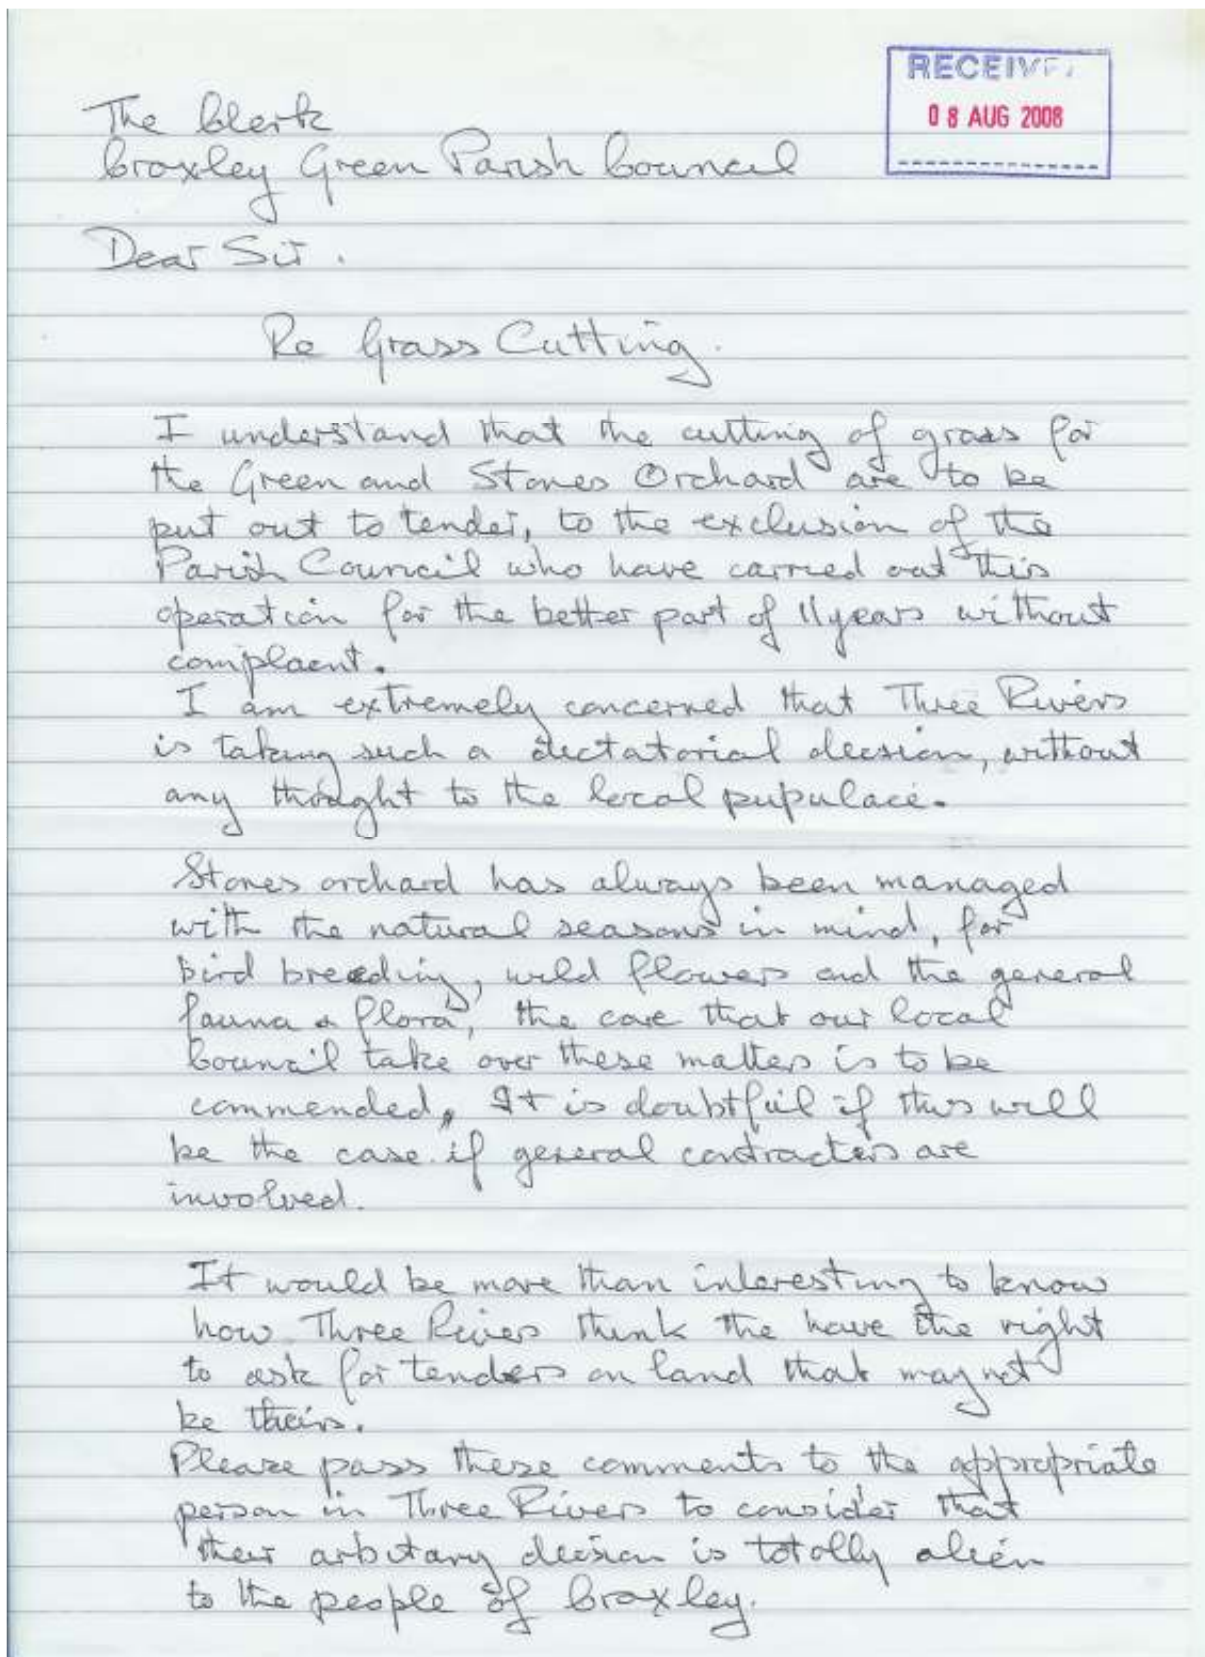 RECEIVED
08 AUG 2008
The Clerk
Croxley Green Parish Council
Dear Sir.
Re Grass Cutting.
I understand that the cutting of grass for
the Green and Stones Orchard are to be
put out to tender, to the exclusion of the
Parish Council who have carried out this
operation for the better part of 11 years without
complaent.
I am extremely concerned that Three Rivers
is taking such a dectatorial decision, without
any thought to the local pupulace.
Stones orchard has always been managed
with the natural seasons in mind, for
bird breeding, wild flowers and the general
fauna & flora, the care that our local
Council take over these matters is to be
commended, It is doubtful if this will
be the case if general contractors are
involved.
It would be more than interesting to know
how Three Rivers think the have the right
to ask for tenders on land that may not
be theirs.
Please pass these comments to the appropriate
person in Three Rivers to consider that
their arbitary decision is totally alien
to the people of Croxley.